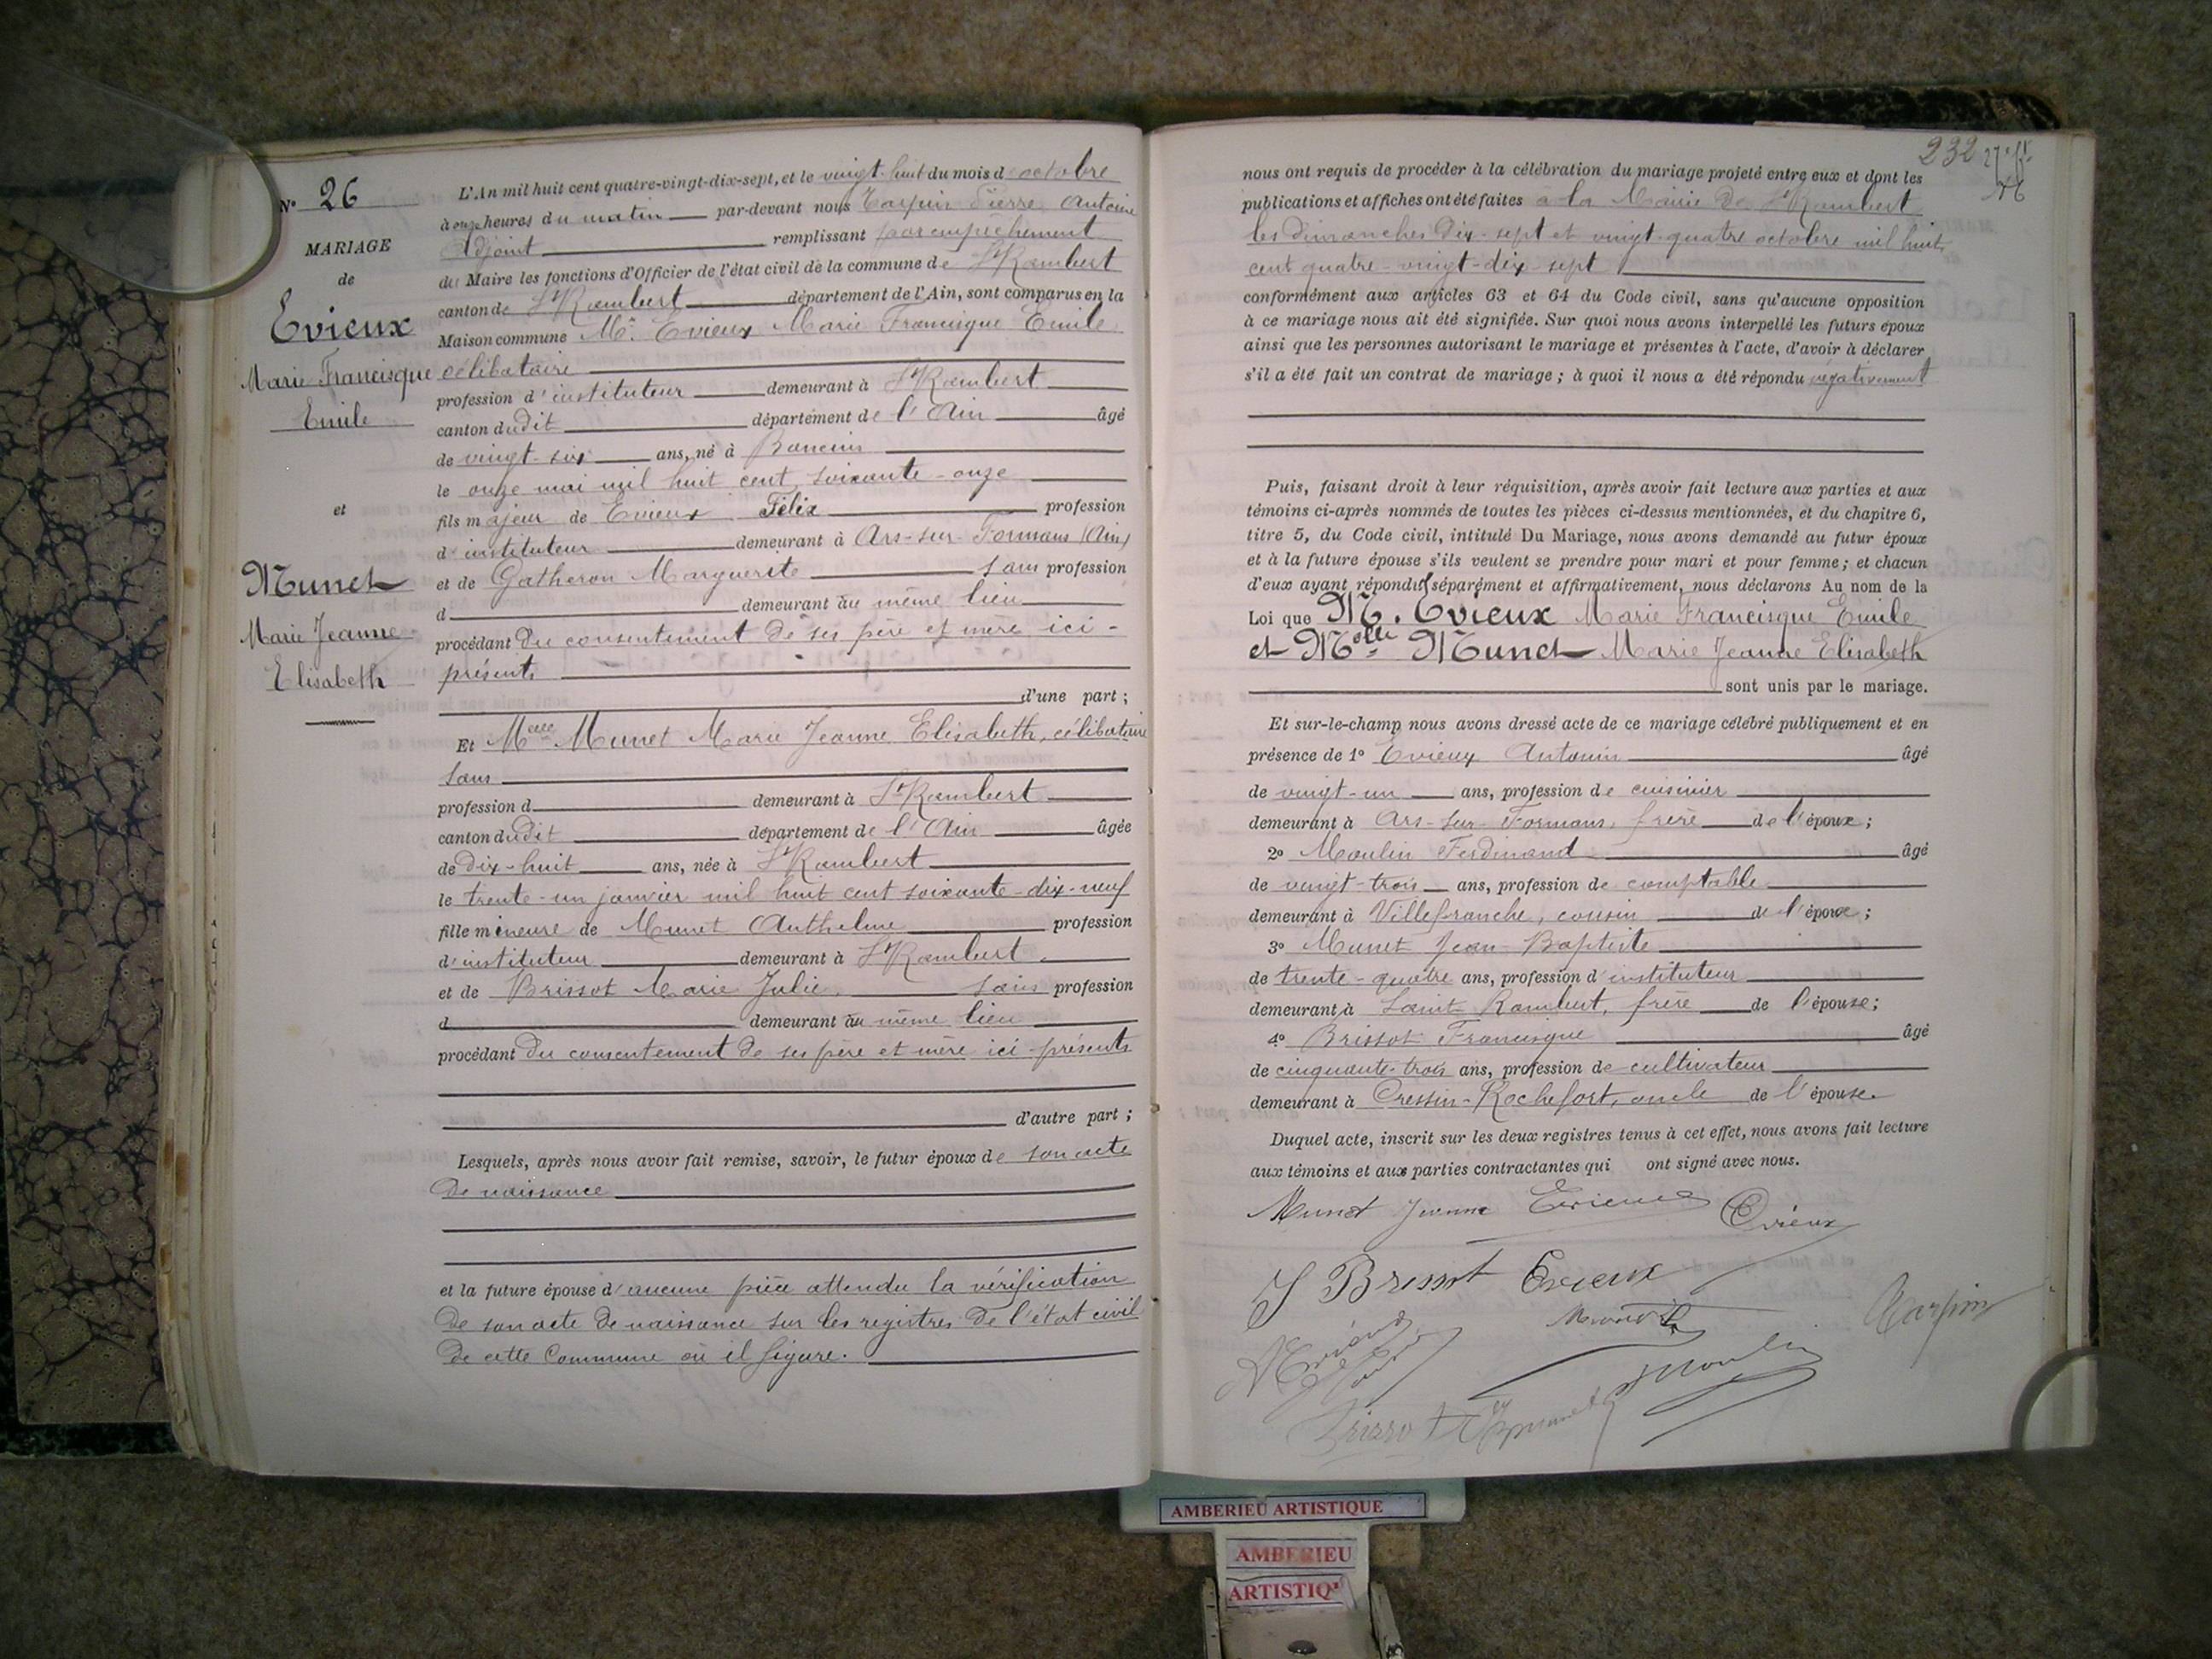 N° 26
MARIAGE
de
Evieux
Marie Francisque
Emile
et
Munet
Marie Jeanne
Elisabeth
L'An mil huit cent quatre-vingt-dix-sept, et le vingt-huit du mois d'octobre
à onze heures du matin par-devant nous Tarpin Pierre Antoine
Adjoint remplissant par empêchement
du Maire les fonctions d'Officier de l'état civil de la commune de St Rambert
canton de St Rambert département de l'Ain, sont comparus en la
Maison commune Mr. Evieux Marie Francisque Emile
célibataire
profession d'instituteur demeurant à St Rambert
canton dudit département de l'Ain âgé
de vingt-six ans, né à Rancin
le onze mai mil huit cent soixante-onze
fils majeur de Evieux Félix profession
d'instituteur demeurant à Ars-sur-Formans (Ain)
et de Gatheron Marguerite sans profession
d demeurant au même lieu
procédant du consentement de ses père et mère ici-
présents
d'une part ;
Et Melle Munet Marie Jeanne Elisabeth, célibataire
sans
profession d demeurant à St Rambert
canton dudit département de l'Ain âgée
de dix-huit ans, née à St Rambert
le trente-un janvier mil huit cent soixante-dix-neuf
fille mineure de Munet Anthelme profession
d'instituteur demeurant à St Rambert
et de Brissot Marie Julie sans profession
d demeurant au même lieu
procédant du consentement de ses père et mère ici-présents
d'autre part ;
Lesquels, après nous avoir fait remise, savoir, le futur époux de son acte
de naissance
et la future épouse d'aucune pièce attendu la vérification
de son acte de naissance sur les registres de l'état civil
de cette Commune où il figure.
232
nous ont requis de procéder à la célébration du mariage projeté entre eux et dont les
publications et affiches ont été faites à la Mairie de St Rambert
les dimanches dix-sept et vingt-quatre octobre mil huit
cent quatre-vingt-dix-sept
conformément aux articles 63 et 64 du Code civil, sans qu'aucune opposition
à ce mariage nous ait été signifiée. Sur quoi nous avons interpellé les futurs époux
ainsi que les personnes autorisant le mariage et présentes à l'acte, d'avoir à déclarer
s'il a été fait un contrat de mariage ; à quoi il nous a été répondu négativement
Puis, faisant droit à leur réquisition, après avoir fait lecture aux parties et aux
témoins ci-après nommés de toutes les pièces ci-dessus mentionnées, et du chapitre 6,
titre 5, du Code civil, intitulé Du Mariage, nous avons demandé au futur époux
et à la future épouse s'ils veulent se prendre pour mari et pour femme ; et chacun
d'eux ayant répondu séparément et affirmativement, nous déclarons Au nom de la
Loi que M. Evieux Marie Francisque Emile
et Melle Munet Marie Jeanne Elisabeth
sont unis par le mariage.
Et sur-le-champ nous avons dressé acte de ce mariage célébré publiquement et en
présence de 1° Evieux Antonin âgé
de vingt-un ans, profession de cuisinier
demeurant à Ars-sur-Formans, frère de l'époux ;
2° Moulin Ferdinand âgé
de vingt-trois ans, profession de comptable
demeurant à Villefranche, cousin de l'époux ;
3° Munet Jean-Baptiste
de trente-quatre ans, profession d'instituteur
demeurant à Saint Rambert, frère de l'épouse ;
4° Brissot Francisque âgé
de cinquante-trois ans, profession de cultivateur
demeurant à Cressin-Rochefort, oncle de l'épouse.
Duquel acte, inscrit sur les deux registres tenus à cet effet, nous avons fait lecture
aux témoins et aux parties contractantes qui ont signé avec nous.
Munet Jeanne Evieux Evieux
J Brissot Evieux
Tarpin
Moulin
Brissot
AMBERIEU ARTISTIQUE
AMBERIEU
ARTISTIQ